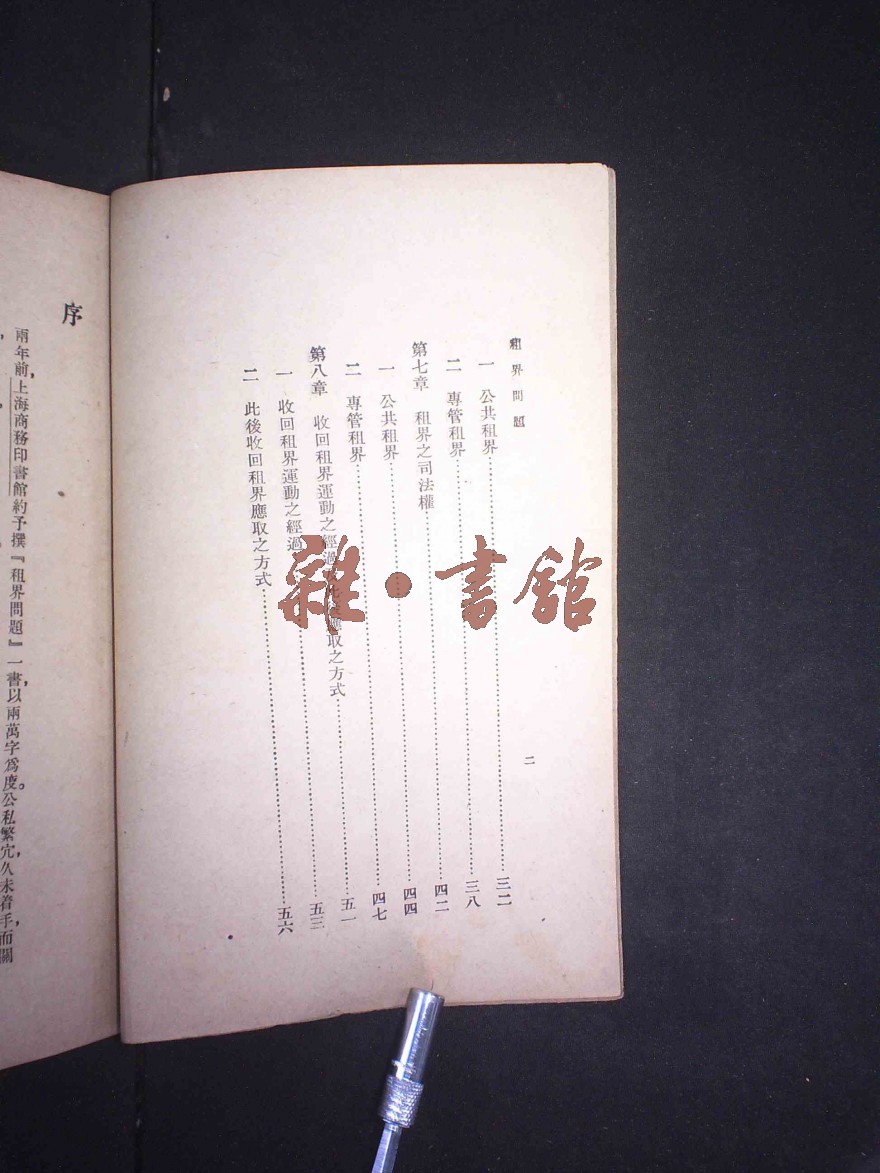 租界問題
二
一 公共租界……………………三二
二 專管租界……………………三八
第七章 租界之司法權……………………四二
一 公共租界……………………四四
二 專管租界……………………四七
第八章 收回租界運動之經過及此後應取之方式……………………五一
一 收回租界運動之經過……………………五三
二 此後收回租界應取之方式……………………五六
序
兩年前,上海商務印書館約予撰『租界問題』一書,以兩萬字爲度。公私繁宂,久未着手,而關
雜·書館